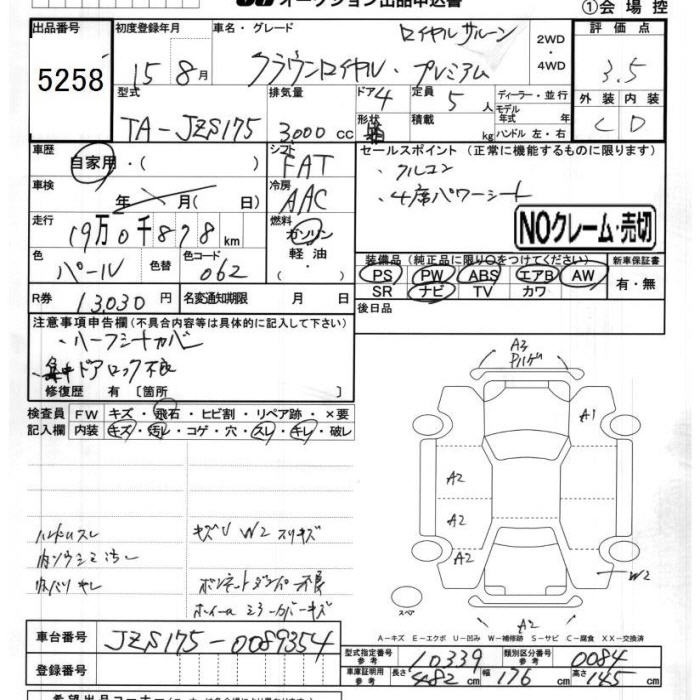 オークション出品申込書
①会場控
出品番号 5258
初度登録年月 15年8月
車名・グレード ロイヤルサルーン
クラウンロイヤル・プレミアム
2WD・4WD
評価点 3.5
外装 C 内装 D
型式 TA-JZS175
排気量 3000cc
ドア 4 形状
定員 5人
積載 kg
ディーラー・並行
モデル年式 年
ハンドル 左・右
車歴 自家用・( )
シフト FAT
セールスポイント (正常に機能するものに限ります)
・クルコン
・4席パワーシート
車検 年 月( 日)
冷房 AAC
走行 19万0千878km
燃料 ガソリン 軽油
NOクレーム・売切
色 パール 色替 色コード 062
装備品 (純正品に限り○をつけてください)
PS PW ABS エアB AW
SR ナビ TV カワ
新車保証書 有・無
R券 13,030円 名変通知期限 月 日
後日品
注意事項申告欄(不具合内容等は具体的に記入して下さい)
・ハーフシートカバー
・集中ドアロック不良
修復歴 有〔箇所 〕
検査員 FW キズ・飛石・ヒビ割・リペア跡・×要
記入欄 内装 キズ・汚レ・コゲ・穴・スレ・キレ・破レ
A3
A1
A2
A2
A2
W2
A2
スペア
ハンドルスレ
キズU W2 スリキズ
内ソウシミ汚レ
ボンネットダンパー不良
ホイールミラーカバーキズ
A-キズ E-エクボ U-凹み W-補修跡 S-サビ C-腐食 XX-交換済
車台番号 JZS175-0089354
登録番号
型式指定番号 参考 10339 類別区分番号 参考 0084
車庫証明用 参考 長さ 482cm 幅 176cm 高さ 145cm